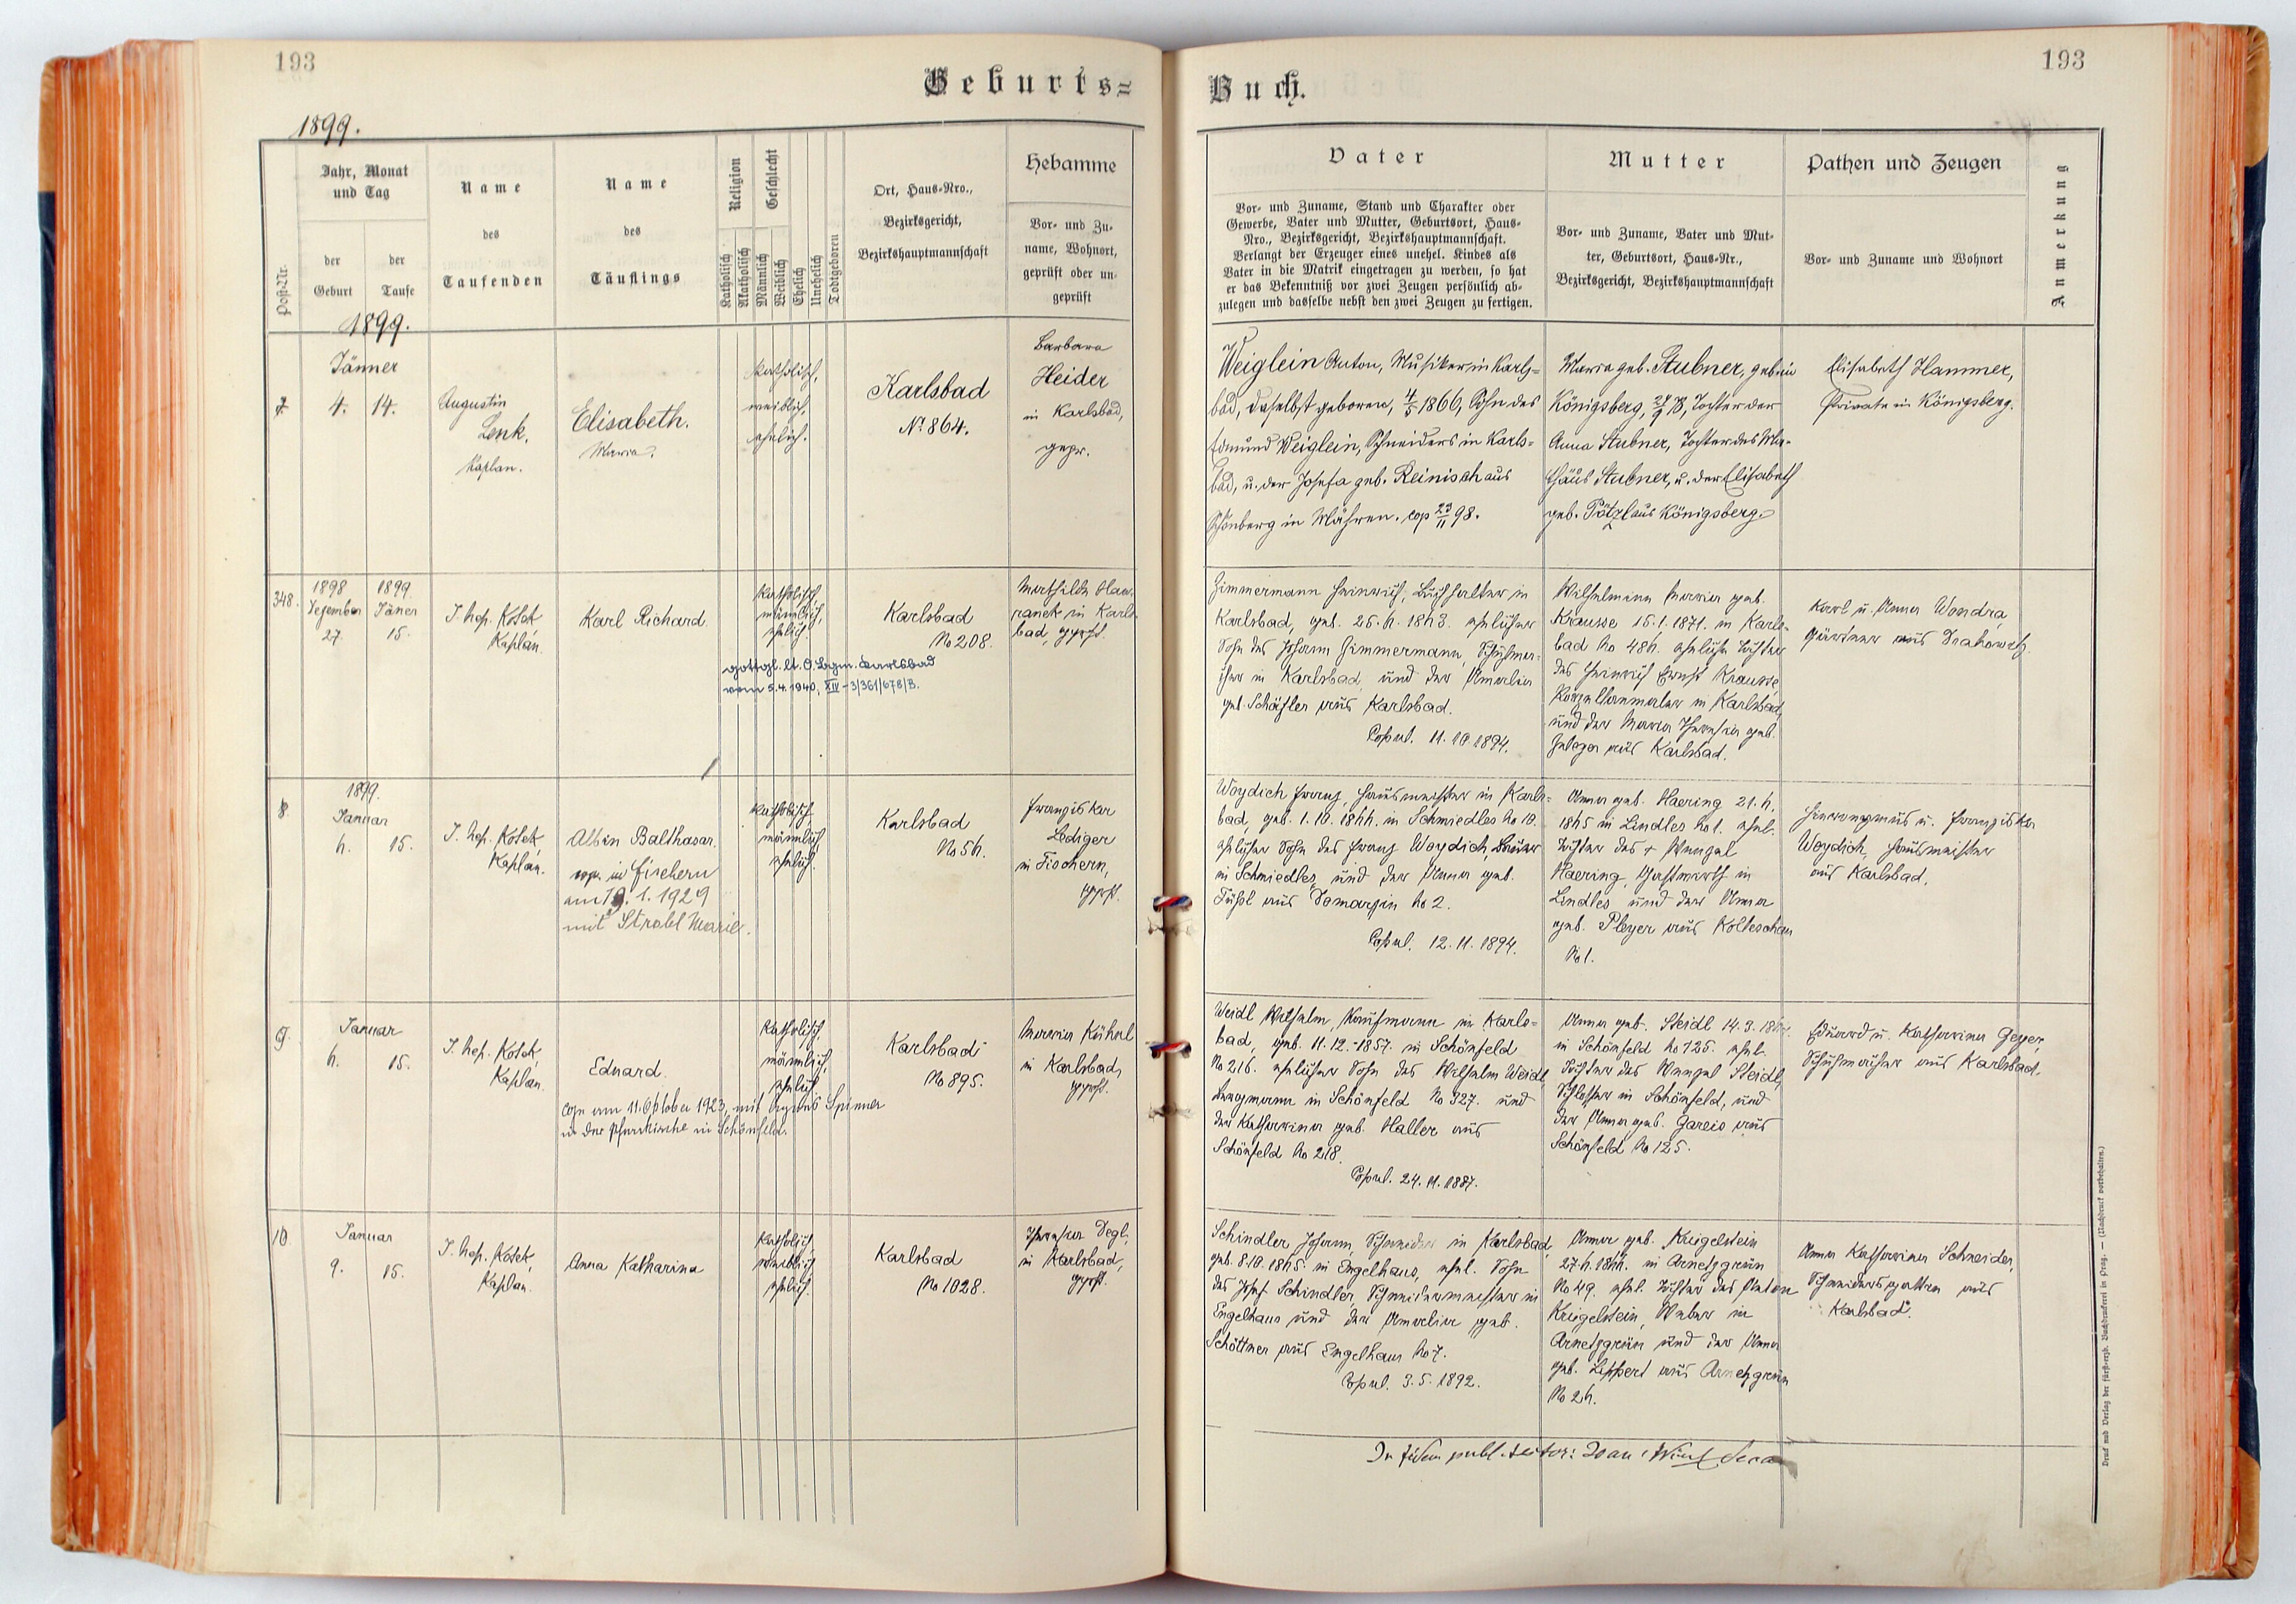 193
193
Geburts=
Buch.
1899.
Post-Nr.
Jahr, Monat
und Tag
der
Geburt
der
Taufe
Name
des
Taufenden
Name
des
Täuflings
Religion
Katholisch
Akatholisch
Geschlecht
Männlich
Weiblich
Ehelich
Unehelich
Todtgeboren
Ort, Haus-Nro.,
Bezirksgericht,
Bezirkshauptmannschaft
Hebamme
Vor- und Zu-
name, Wohnort,
geprüft oder un-
geprüft
Vater
Vor- und Zuname, Stand und Charakter oder
Gewerbe, Vater und Mutter, Geburtsort, Haus-
Nro., Bezirksgericht, Bezirkshauptmannschaft.
Verlangt der Erzeuger eines unehel. Kindes als
Vater in die Matrik eingetragen zu werden, so hat
er das Bekenntniß vor zwei Zeugen persönlich ab-
zulegen und dasselbe nebst den zwei Zeugen zu fertigen.
Mutter
Vor- und Zuname, Vater und Mut-
ter, Geburtsort, Haus-Nr.,
Bezirksgericht, Bezirkshauptmannschaft
Pathen und Zeugen
Vor- und Zuname und Wohnort
Anmerkung
1899.
Jänner
7
4. 14.
Augustin
Lenk,
Kaplan.
Elisabeth.
Maria.
katholisch,
weiblich,
ehelich.
Karlsbad
No 864.
Barbara
Heider
in Karlsbad,
gepr.
Weiglein Anton, Musiker in Karls=
bad, daselbst geboren, 4/5 1866, Sohn des
Edmund Weiglein, Schneiders in Karls=
bad, u. der Josefa geb. Reinisch aus
Schönberg in Mähren. cop 23/11 98.
Maria geb. Stubner, geb. in
Königsberg, 78, Tochter der
Anna Stubner, Tochter des Ma-
thäus Stubner, u. der Elisabeth
geb. Pötzl aus Königsberg.
Elisabeth Hammer,
Private in Königsberg.
348.
1898
Dezember
27.
1899.
Jäner
15.
J. Nep. Kosek,
Kaplan.
Karl Richard
katholisch,
männlich,
ehelich.
gottgl. lt. O.Bgm. Karlsbad
vom 5.4.1940, XIV-3/361/678/B.
Karlsbad
No 208.
Mathilde Haw-
ranek in Karls-
bad, gepr.
Zimmermann Heinrich, Buchhalter in
Karlsbad, geb. 25. 4. 1843. ehelicher
Sohn des Johann Zimmermann, Schuhma-
cher in Karlsbad, und der Amalia
geb. Schäftler aus Karlsbad.
Copul. 11. 10. 1894.
Wilhelmine Maria geb.
Krausse 15. 1. 1871. in Karls-
bad No 484. eheliche Tochter
des Heinrich Ernst Krausse,
Porzellanmaler in Karlsbad,
und der Maria Theresia geb.
aus Karlsbad.
Karl u. Anna Wondra,
Gärtner aus Drahowitz.
8
1899.
Januar
4. 15.
J. Nep. Kosek,
Kaplan.
Albin Balthasar.
cop. in Fischern
am 19.1.1929
mit Strobl Marie.
katholisch,
männlich,
ehelich.
Karlsbad
No 54.
Franziska
Lediger
in Fischern,
gepr.
Woydich Franz, Hausmeister in Karls-
bad, geb. 1. 10. 1844. in Schmiedles No 10.
ehelicher Sohn des Franz Woydich, Bauer
in Schmiedles, und der Anna geb.
Füßl aus Domaschin No 2.
Copul. 12. 11. 1894.
Anna geb. Haering 21. 4.
1845 in Lindles No 1. ehel.
Tochter des + Wenzel
Haering, Gastwirth in
Lindles und der Anna
geb. Pleyer aus Kolleschau
No 1.
Hieronymus u. Franziska
Woydich, Hausmeister
aus Karlsbad.
9.
Januar
4. 15.
J. Nep. Kosek,
Kaplan.
Eduard.
cop am 11. Oktober 1923, mit Agnes Spinner
in der Pfarrkirche in Schönfeld.
katholisch,
männlich,
ehelich
Karlsbad
No 895.
Maria Kühnl
in Karlsbad,
gepr.
Weidl Wilhelm, Kaufmann in Karls-
bad, geb. 11. 12. 1857. in Schönfeld
No 216. ehelicher Sohn des Wilhelm Weidl
Bergmann in Schönfeld No 327. und
der Katharina geb. Haller aus
Schönfeld No 218.
Copul. 24. 11. 1887.
Anna geb. Steidl 14. 3.
in Schönfeld No 125. ehel.
Tochter des Wenzel Steidl,
Schlosser in Schönfeld, und
der Anna geb. Gareis aus
Schönfeld No 125.
Eduard u. Katharina Geyer,
Schuhmacher aus Karlsbad.
10.
Januar
9. 15.
J. Nep. Kosek,
Kaplan.
Anna Katharina
katholisch
weiblich
ehelich.
Karlsbad
No 1028.
Theresia Degl,
in Karlsbad,
gepr.
Schindler Johann, Schneider in Karlsbad,
geb. 8. 10. 1845. in Engelhaus, ehel. Sohn
des Josef Schindler, Schneidermeister in
Engelhaus und der Amalia geb.
Schöttner aus Engelhaus No 7.
Copul. 3. 5. 1892.
Anna geb. Kriegelstein
27. 4. 1844. in Arnetzgrün
No 49. ehel. Tochter des Anton
Kriegelstein, Weber in
Arnetzgrün und der Anna
geb. Lippert aus Arnetzgrün
No 24.
Anna Katharina Schneider,
Schneidersgattin aus
Karlsbad.
In fidem publ. testor:
Druck und Verlag der fürst-erzb. Buchdruckerei in Prag. — (Nachdruck vorbehalten.)